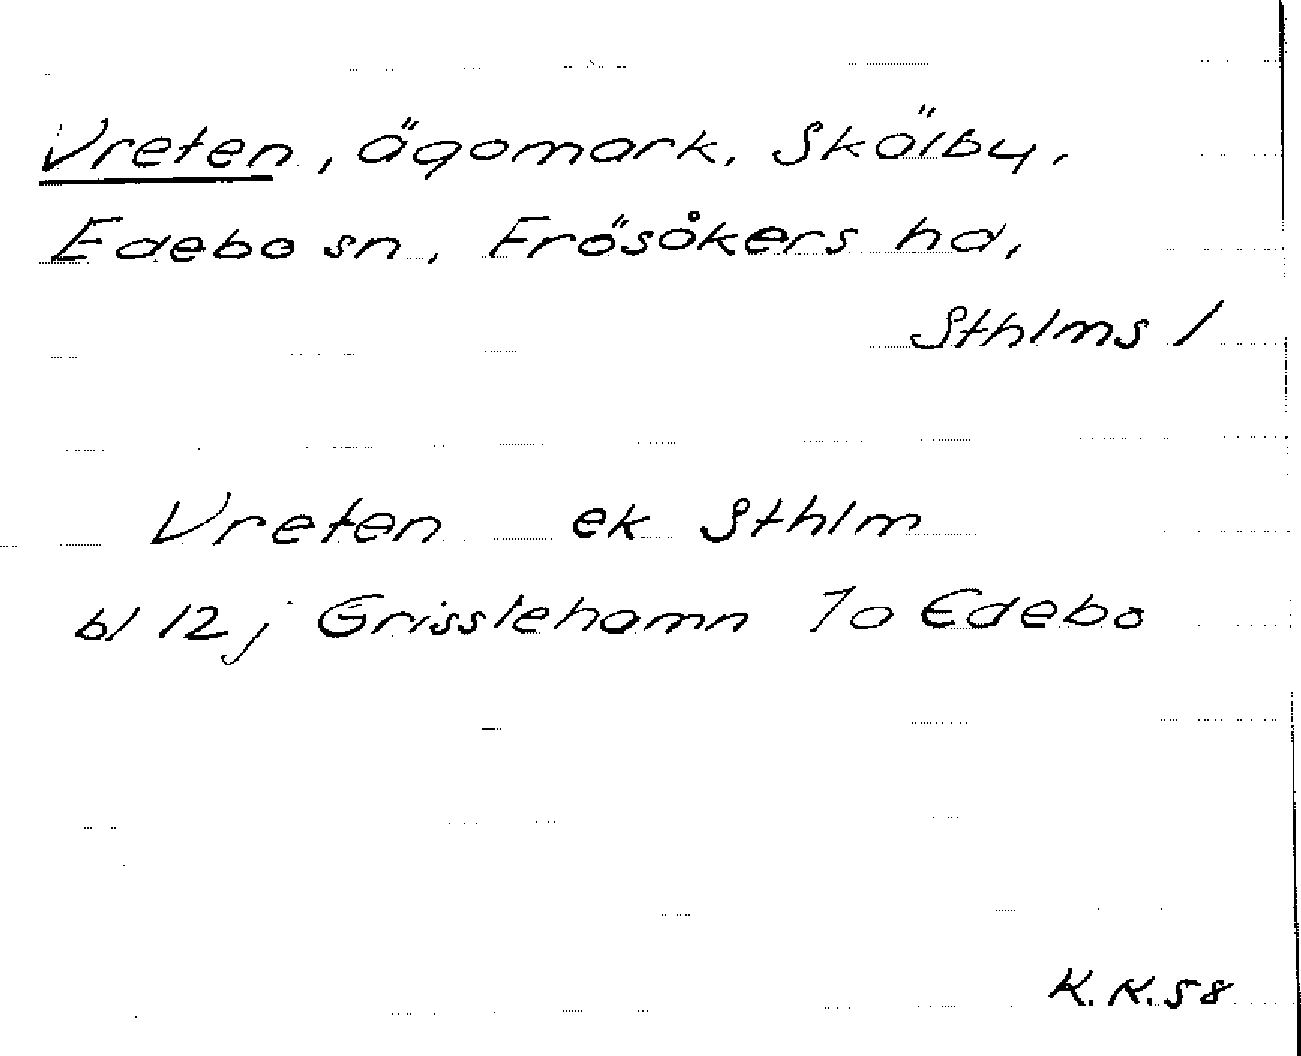 Vreten, ägomark, Skälby,
Edebo sn, Frösåkers hd,
Sthlms l
Vreten ek Sthlm
bl 12j Grisslehamn 7o Edebo
K.K.58